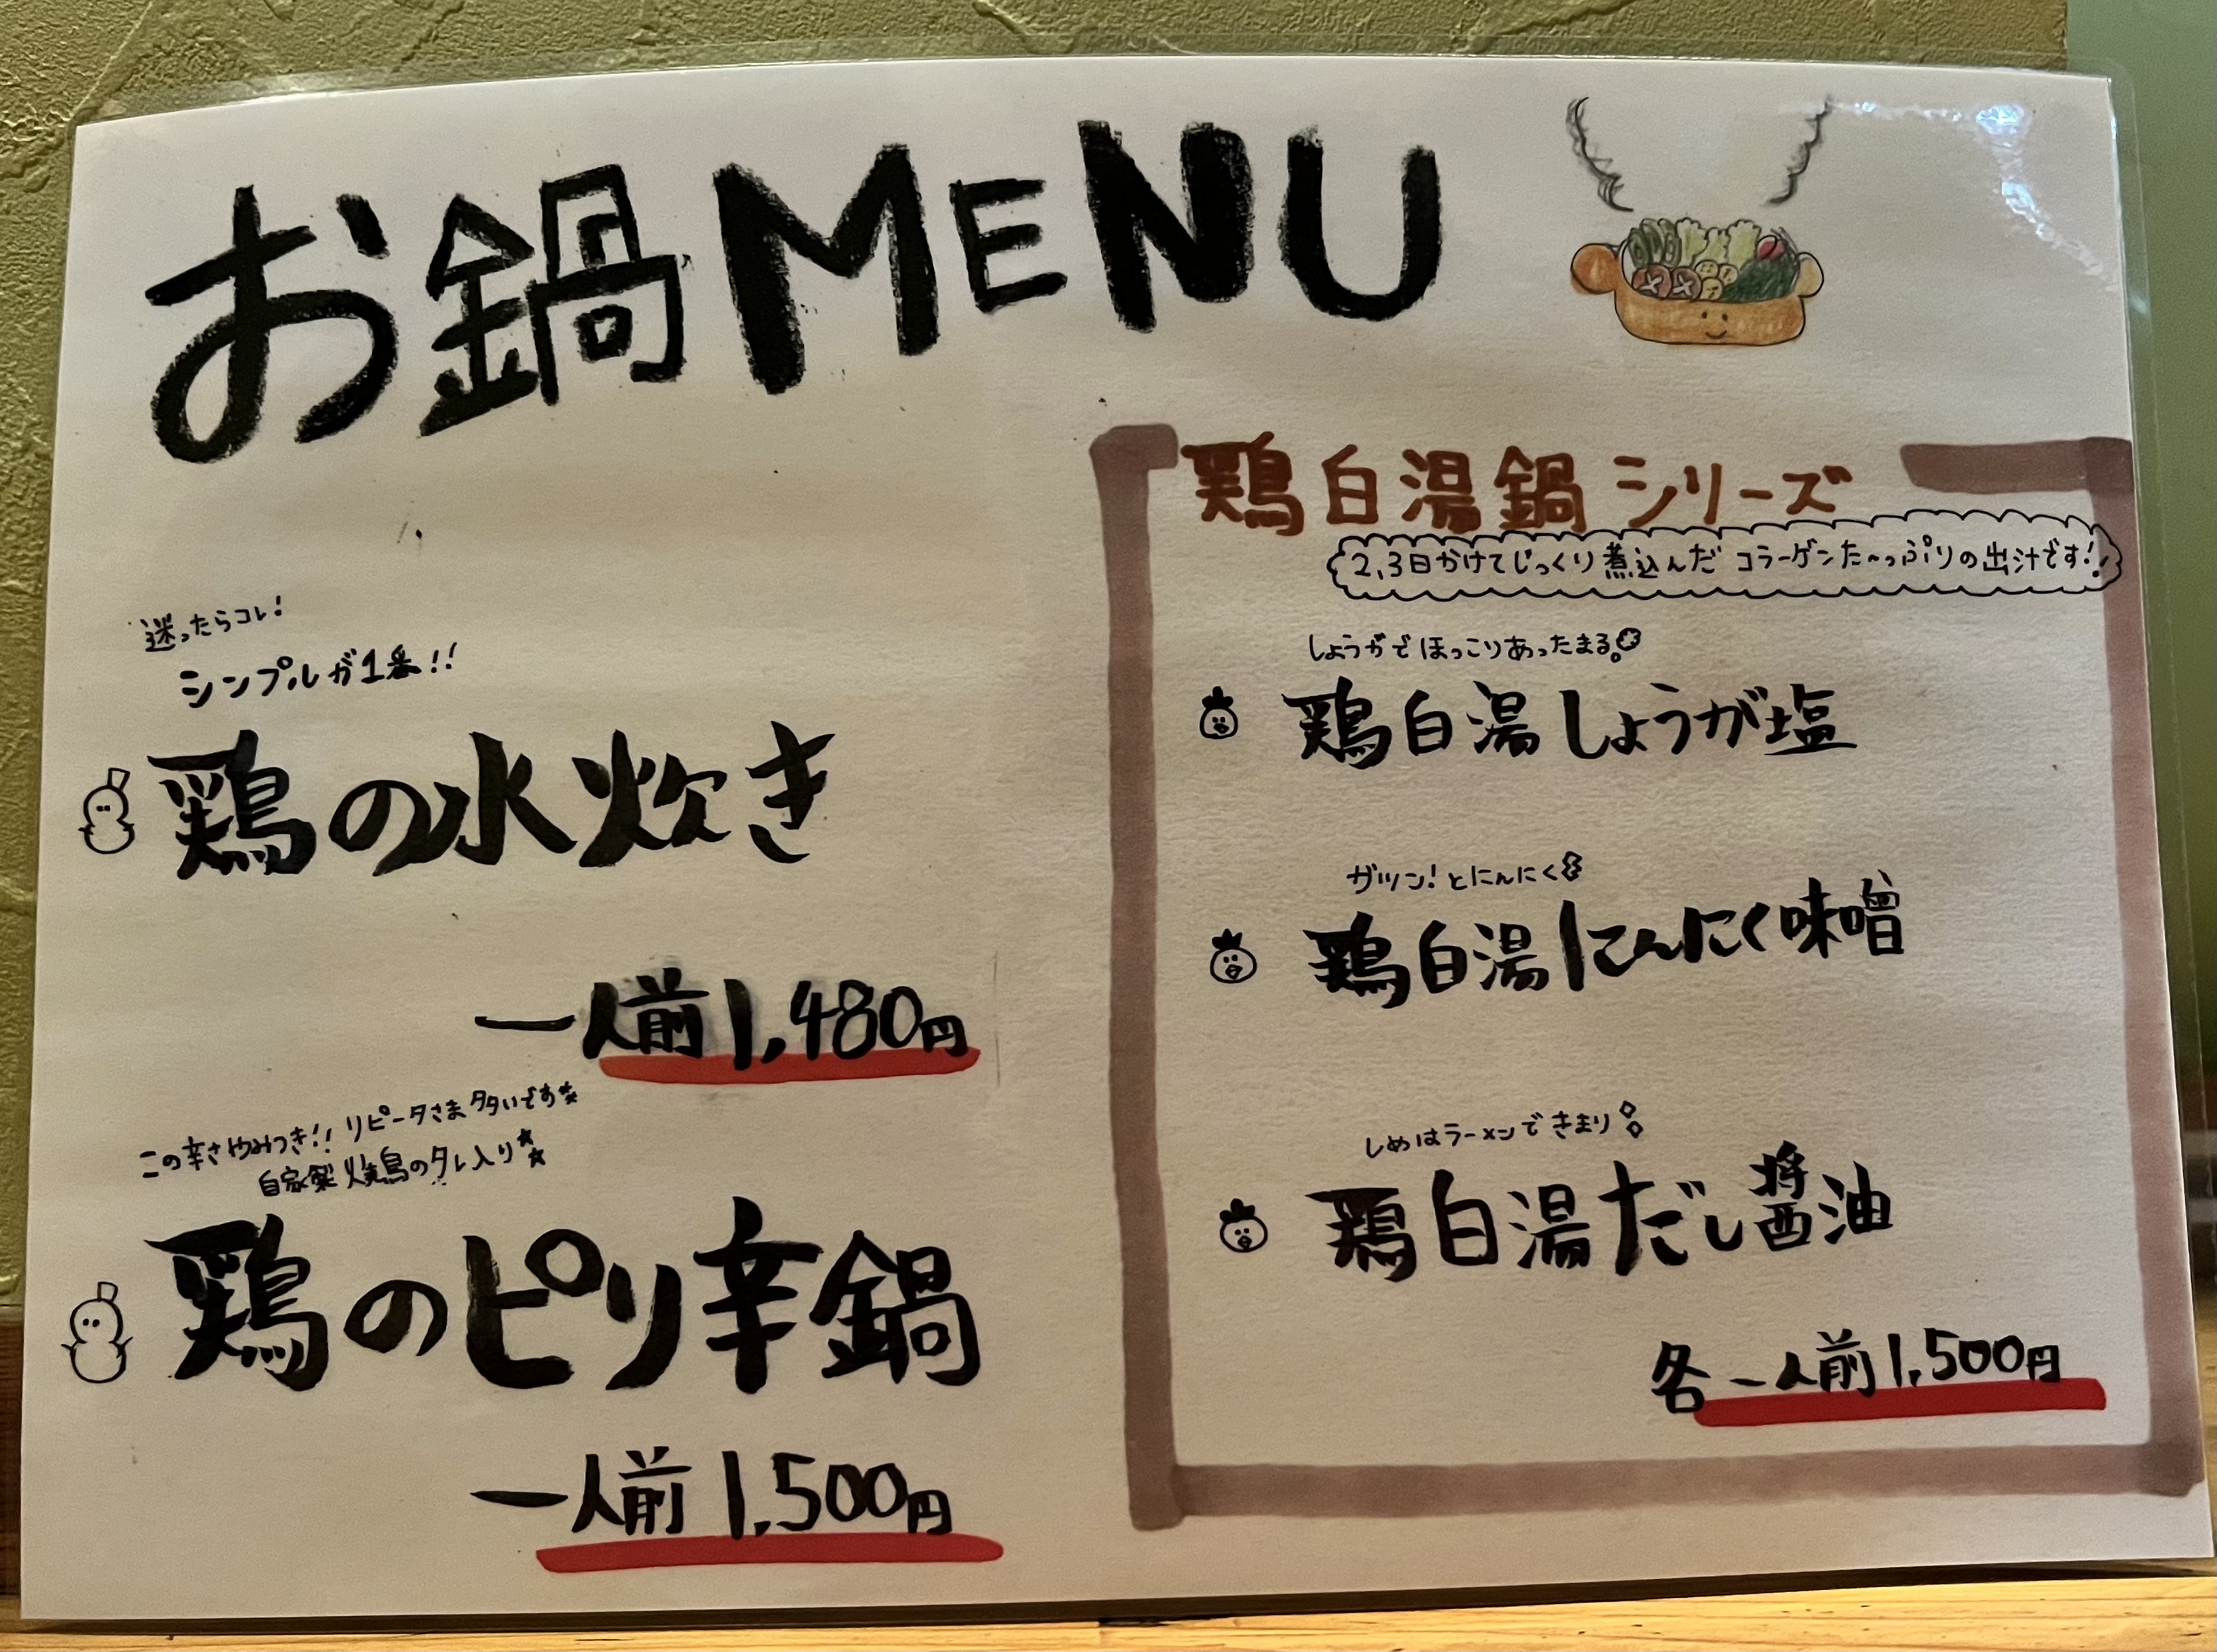 お鍋MENU
迷ったらコレ!
シンプルが1番!!
鶏の水炊き
一人前1,480円
この辛さやみつき!! リピータさま多いです☆
自家製 焼鳥のタレ入り☆
鶏のピリ辛鍋
一人前 1,500円
鶏白湯鍋シリーズ
2,3日かけてじっくり煮込んだ コラーゲンた〜っぷりの出汁です!
しょうがで ほっこりあったまる。
鶏白湯しょうが塩
ガツン!とにんにく
鶏白湯にんにく味噌
しめはラーメンで きまり
鶏白湯だし醤油
各一人前1,500円